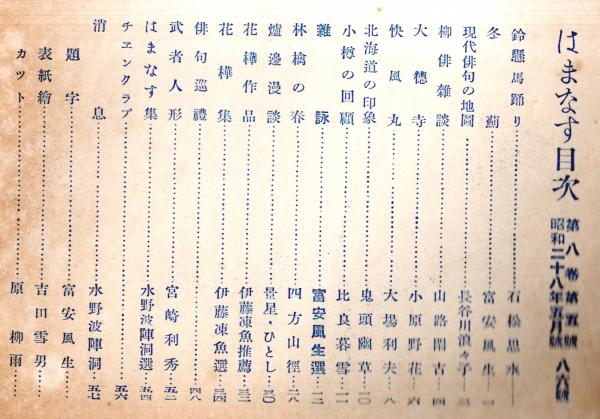 はまなす目次
第八卷第五號
昭和二十八年五月號 八六號
鈴懸馬踊り……石松思水
冬薊……富安風生…一
現代俳句の地圖……長谷川浪々子…三
柳俳雜談……山路閑古…四
大德寺……小原野花…六
快風丸……大場利夫…八
北海道の印象……鬼頭幽草…一〇
小樽の回顧……比良暮雪…一一
雜詠……富安風生選…一二
林檎の春……四方山徑…二八
爐邊漫談……景星・ひとし…三〇
花樺作品……伊藤凍魚推薦…三三
花樺集……伊藤凍魚選…三四
俳句巡禮……四八
武者人形……宮崎利秀…五二
はまなす集……水野波陣洞選…五四
チヱンクラブ……五六
消息……水野波陣洞…五七
題字……富安風生
表紙繪……吉田雪男
カット……原柳雨